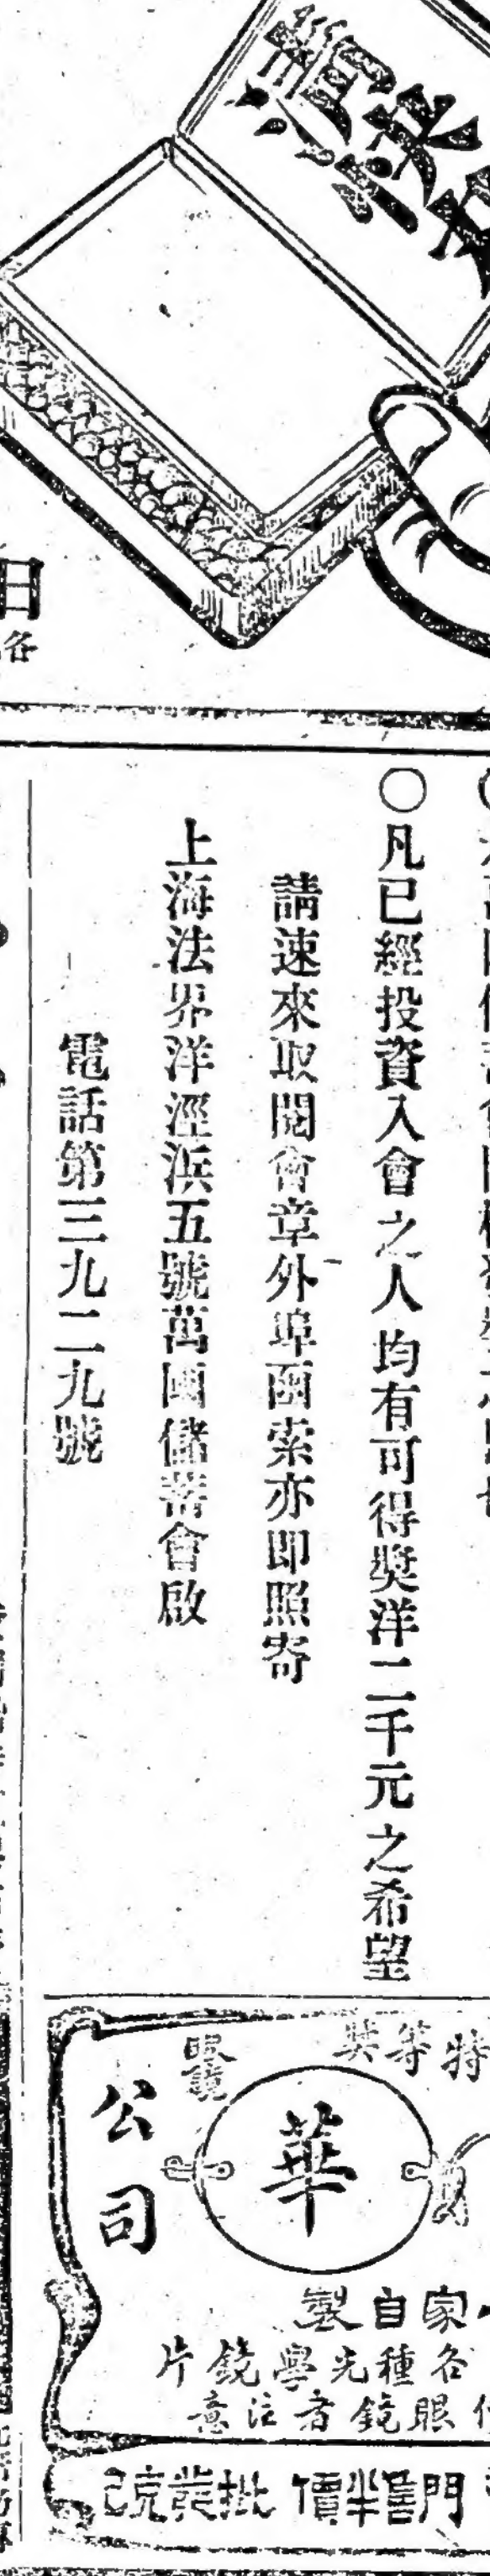 清快
日
各
○凡已經投資入會之人均有可得獎洋二千元之希望
請速來取閱會章外埠函索亦即照寄
上海法界洋涇浜五號萬國儲蓄會啟
電話第三九二九號
特等獎
眼鏡
華
公司
家自製
各種光學鏡片
眼鏡者注意
門售半價
批發克己